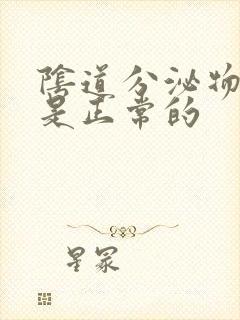 陰道分泌物
是正常的
星冢